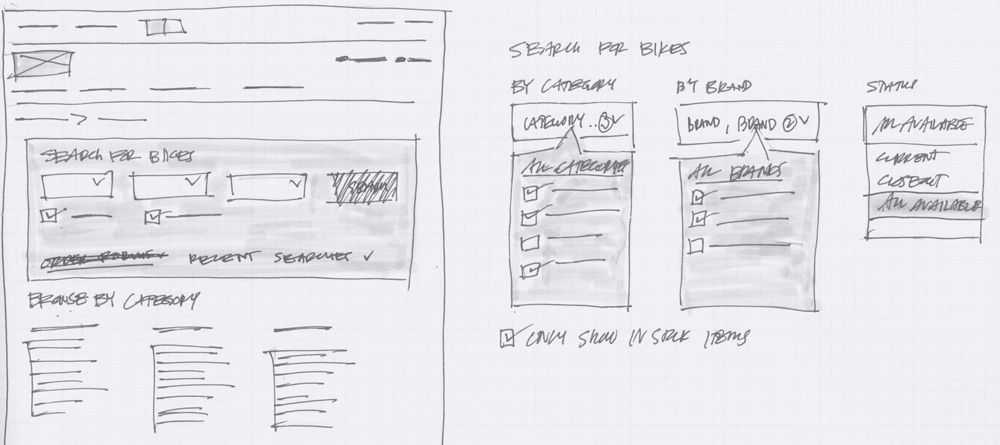 SEARCH FOR BIKES
RECENT SEARCHES
BROWSE BY CATEGORY
SEARCH FOR BIKES
BY CATEGORY
CATEGORY.. 3
ALL CATEGORIES
BY BRAND
BRAND, BRAND 2
ALL BRANDS
STATUS
ALL AVAILABLE
CURRENT
CLOSEOUT
ALL AVAILABLE
ONLY SHOW IN STOCK ITEMS